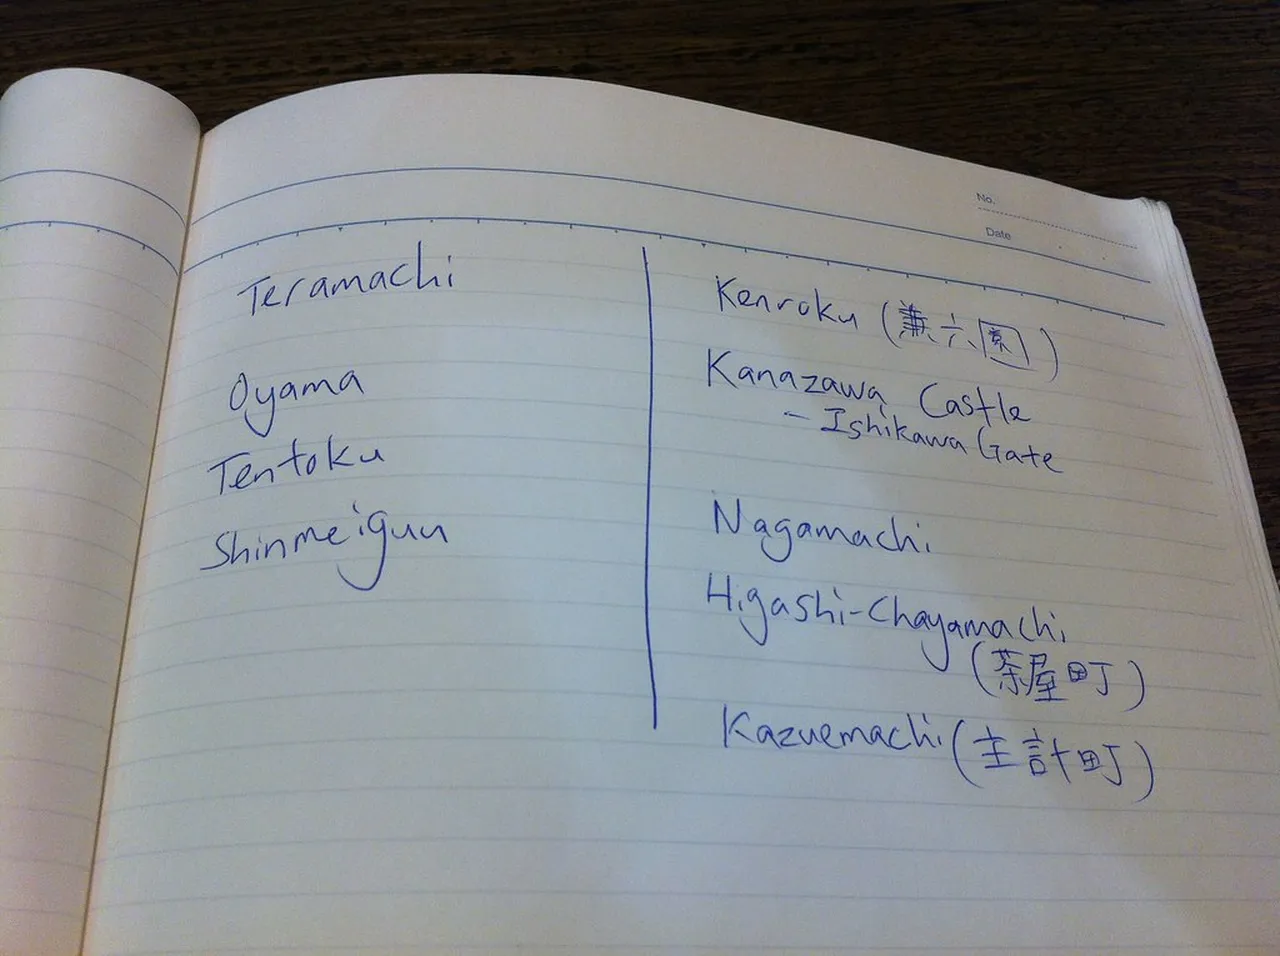 No.
Date
Teramachi
Oyama
Tentoku
Shinmeiguu
Kenroku (兼六園)
Kanazawa Castle
- Ishikawa Gate
Nagamachi
Higashi-Chayamachi
(茶屋町)
Kazuemachi (主計町)